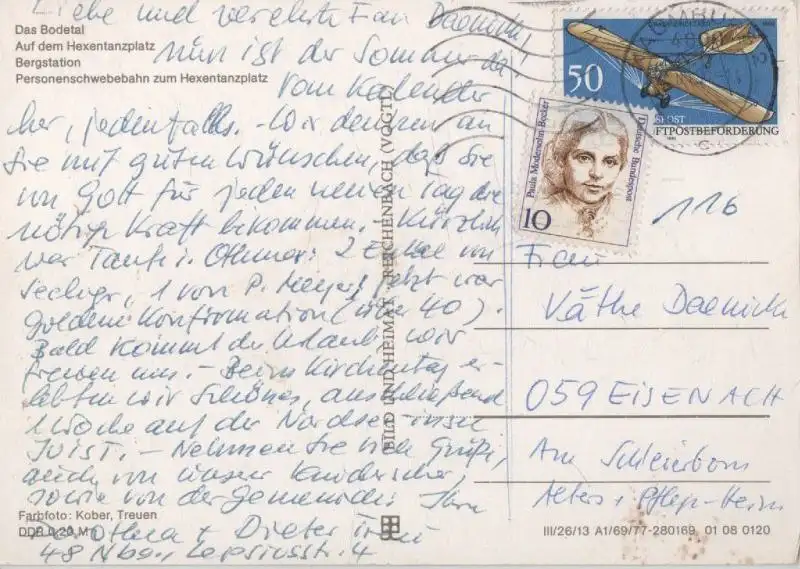 Liebe und verehrte Frau Daenicke!
Das Bodetal
Auf dem Hexentanzplatz
Bergstation
Personenschwebebahn zum Hexentanzplatz
Nun ist der Sommer da!
Vom Kalender
her, jedenfalls. – Wir denken an
Sie mit guten Wünschen, daß Sie
von Gott für jeden neuen Tag die
nötige Kraft bekommen. Kürzlich
war Taufe i. Othmar: 2 Enkel von
1 von P. Meyer, jetzt war
Goldene Konfirmation (über 40).
Bald kommt der Urlaub, wir
freuen uns. – Beim Kirchentag er-
lebten wir Schönes, anschließend
1 Woche auf der Nordseeinsel
Juist. – Nehmen Sie viele Grüße,
auch von unser
sowie von der Gemeinde. Ihre
Dorothea + Dieter
48 Nbg., 4
Farbfoto: Kober, Treuen
DDR 0,20 M
BILD UND HEIMAT REICHENBACH (VOGTL)
50
POST
LUFTPOSTBEFÖRDERUNG
Paula Modersohn-Becker
Deutsche Bundespost
10
116
Frau
Käthe Daenicke
O59 EISENACH
Am Schleierborn
Alters + Pflege-Heim
III/26/13 A1/69/77-280169 01 08 0120